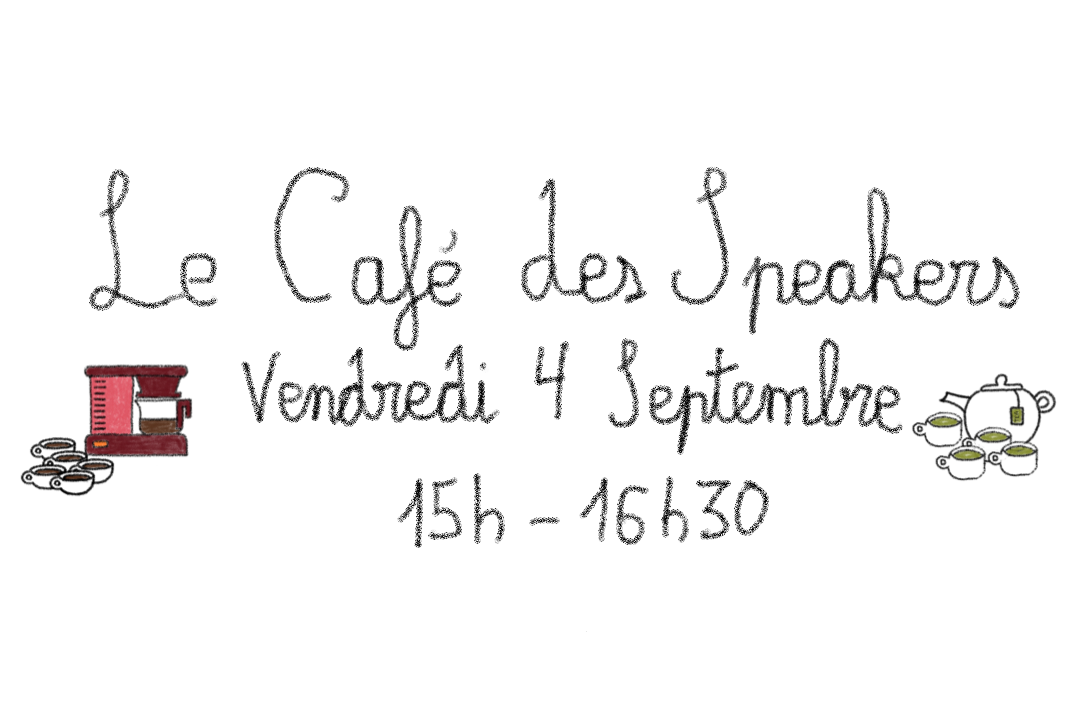 Le Café des Speakers
Vendredi 4 Septembre
15h - 16h30